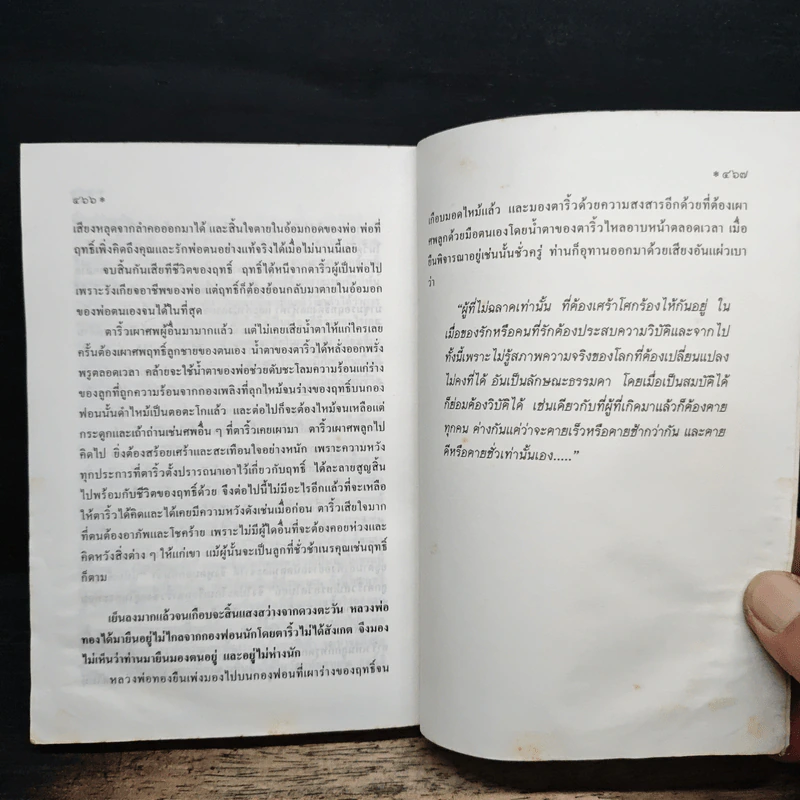 ๔๖๖ •
เสียงหลุดจากลำคอออกมาได้ และสิ้นใจตายในอ้อมกอดของพ่อ พ่อที่
ฤทธิ์เพิ่งคิดถึงคุณและรักพ่อตนอย่างแท้จริงได้เมื่อไม่นานนี้เลย
จบสิ้นกันเสียทีชีวิตของฤทธิ์ ฤทธิ์ได้หนีจากตาริ้วผู้เป็นพ่อไป
เพราะรังเกียจอาชีพของพ่อ แต่ฤทธิ์ก็ต้องย้อนกลับมาตายในอ้อมอก
ของพ่อตนเองจนได้ในที่สุด
ตาริ้วเผาศพผู้อื่นมามากแล้ว แต่ไม่เคยเสียน้ำตาให้แก่ใครเลย
ครั้นต้องเผาศพฤทธิ์ลูกชายของตนเอง น้ำตาของตาริ้วได้หลั่งออกพรั่ง
พรูตลอดเวลา คล้ายจะใช้น้ำตาของพ่อช่วยดับชะโลมความร้อนแก่ร่าง
ของลูกที่ถูกความร้อนจากกองเพลิงที่ลุกไหม้จนร่างของฤทธิ์บนกอง
ฟอนนั้นดำไหม้เป็นตอตะโกแล้ว และต่อไปก็จะต้องไหม้จนเหลือแต่
กระดูกและเถ้าถ่านเช่นศพอื่น ๆ ที่ตาริ้วเคยเผามา ตาริ้วเผาศพลูกไป
คิดไป ยิ่งต้องสร้อยเศร้าและสะเทือนใจอย่างหนัก เพราะความหวัง
ทุกประการที่ตาริ้วตั้งปรารถนาเอาไว้เกี่ยวกับฤทธิ์ ได้ละลายสูญสิ้น
ไปพร้อมกับชีวิตของฤทธิ์ด้วย จึงต่อไปนี้ไม่มีอะไรอีกแล้วที่จะเหลือ
ให้ตาริ้วได้คิดและได้เคยมีความหวังดังเช่นเมื่อก่อน ตาริ้วเสียใจมาก
ที่ตนต้องอาภัพและโชคร้าย เพราะไม่มีผู้ใดอื่นที่จะต้องคอยห่วงและ
คิดหวังสิ่งต่าง ๆ ให้แก่เขา แม้ผู้นั้นจะเป็นลูกที่ชั่วช้าเนรคุณเช่นฤทธิ์
ก็ตาม
เย็นลงมากแล้วจนเกือบจะสิ้นแสงสว่างจากดวงตะวัน หลวงพ่อ
ทองได้มายืนอยู่ไม่ไกลจากกองฟอนนักโดยตาริ้วไม่ได้สังเกต จึงมอง
ไม่เห็นว่าท่านมายืนมองตนอยู่ และอยู่ไม่ห่างนัก
หลวงพ่อทองยืนเพ่งมองไปบนกองฟอนที่เผาร่างของฤทธิ์จน
• ๔๖๗
เกือบมอดไหม้แล้ว และมองตาริ้วด้วยความสงสารอีกด้วยที่ต้องเผา
ศพลูกด้วยมือตนเองโดยน้ำตาของตาริ้วไหลอาบหน้าตลอดเวลา เมื่อ
ยืนพิจารณาอยู่เช่นนั้นชั่วครู่ ท่านก็อุทานออกมาด้วยเสียงอันแผ่วเบา
ว่า
“ผู้ที่ไม่ฉลาดเท่านั้น ที่ต้องเศร้าโศกร้องไห้กันอยู่ ใน
เมื่อของรักหรือคนที่รักต้องประสบความวิบัติและจากไป
ทั้งนี้เพราะไม่รู้สภาพความจริงของโลกที่ต้องเปลี่ยนแปลง
ไม่คงที่ได้ อันเป็นลักษณะธรรมดา โดยเมื่อเป็นสมบัติได้
ก็ย่อมต้องวิบัติได้ เช่นเดียวกับที่ผู้ที่เกิดมาแล้วก็ต้องตาย
ทุกคน ต่างกันแต่ว่าจะตายเร็วหรือตายช้ากว่ากัน และตาย
ดีหรือตายชั่วเท่านั้นเอง.....”